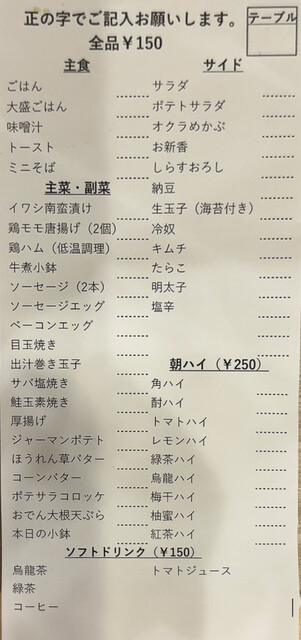 正の字でご記入お願いします。
全品￥150
テーブル
主食
ごはん
大盛ごはん
味噌汁
トースト
ミニそば
主菜・副菜
イワシ南蛮漬け
鶏モモ唐揚げ（2個）
鶏ハム（低温調理）
牛煮小鉢
ソーセージ（2本）
ソーセージエッグ
ベーコンエッグ
目玉焼き
出汁巻き玉子
サバ塩焼き
鮭玉素焼き
厚揚げ
ジャーマンポテト
ほうれん草バター
コーンバター
ポテサラコロッケ
おでん大根天ぷら
本日の小鉢
サイド
サラダ
ポテトサラダ
オクラめかぶ
お新香
しらすおろし
納豆
生玉子（海苔付き）
冷奴
キムチ
たらこ
明太子
塩辛
朝ハイ（￥250）
角ハイ
酎ハイ
トマトハイ
レモンハイ
緑茶ハイ
烏龍ハイ
梅干ハイ
柚蜜ハイ
紅茶ハイ
ソフトドリンク（￥150）
烏龍茶
緑茶
コーヒー
トマトジュース